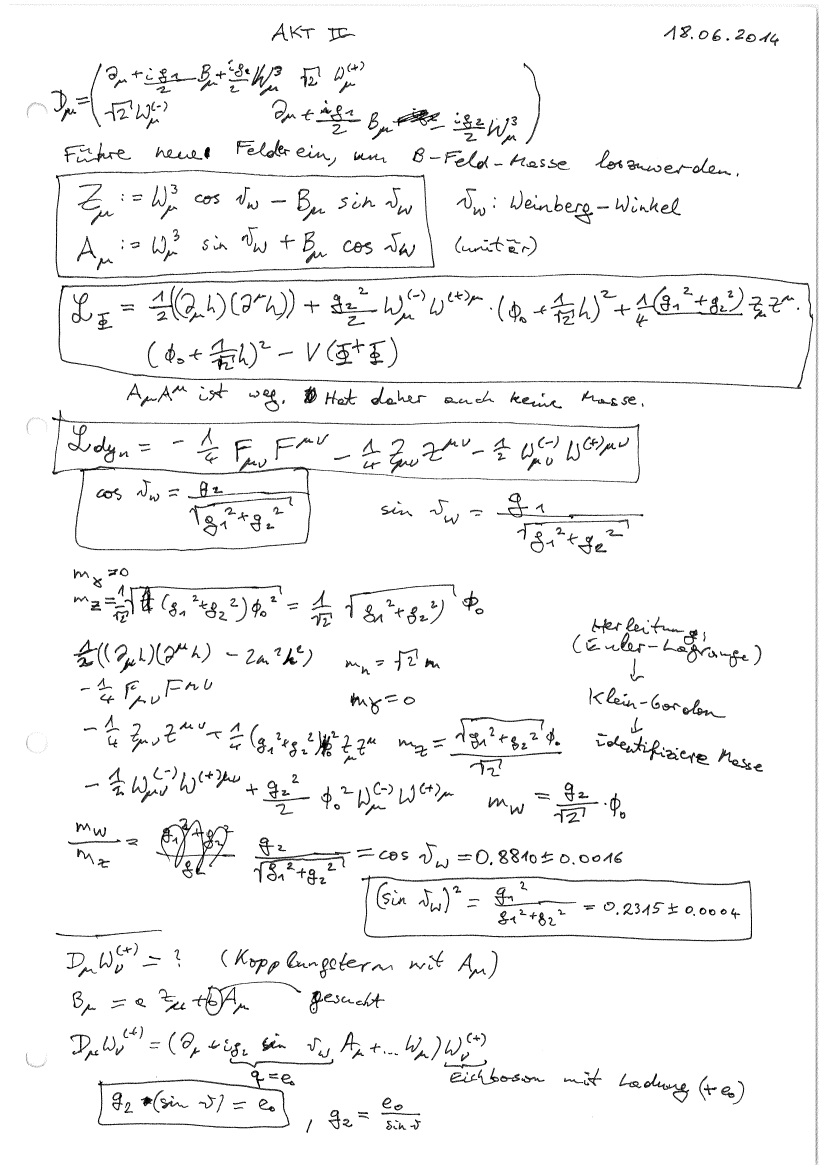 AKT II 18.06.2014
D_μ = ( ∂_μ + i g_1/2 B_μ + i g_2/2 W_μ^3 √2 W_μ^(+)
√2 W_μ^(-) ∂_μ + i g_1/2 B_μ - i g_2/2 W_μ^3 )
Führe neue Felder ein, um B-Feld-Masse loszuwerden.
Z_μ := W_μ^3 cos ϑ_W - B_μ sin ϑ_W ϑ_W : Weinberg-Winkel
A_μ := W_μ^3 sin ϑ_W + B_μ cos ϑ_W (unitär)
ℒ_Φ = 1/2((∂_μ h)(∂^μ h)) + g_2^2/2 W_μ^(-) W^(+)μ · (ϕ_0 + 1/√2 h)^2 + 1/4 (g_1^2 + g_2^2) Z_μ Z^μ ·
(ϕ_0 + 1/√2 h)^2 - V(Φ^† Φ)
A_μ A^μ ist weg. Hat daher auch keine Masse.
ℒ_dyn = - 1/4 F_μν F^μν - 1/4 Z_μν Z^μν - 1/2 W_μν^(-) W^(+)μν
cos ϑ_W = g_2/√(g_1^2 + g_2^2) sin ϑ_W = g_1/√(g_1^2 + g_2^2)
m_γ = 0
m_Z = 1/√2 √((g_1^2 + g_2^2) ϕ_0^2) = 1/√2 √(g_1^2 + g_2^2) ϕ_0
Herleitung:
(Euler-Lagrange)
↓
Klein-Gordon
↓
identifiziere Masse
1/2((∂_μ h)(∂^μ h) - 2m^2 h^2) m_h = √2 m
- 1/4 F_μν F^μν m_γ = 0
- 1/4 Z_μν Z^μν + 1/4 (g_1^2 + g_2^2) ϕ_0^2 Z_μ Z^μ m_Z = √(g_1^2 + g_2^2) ϕ_0/√2
- 1/2 W_μν^(-) W^(+)μν + g_2^2/2 ϕ_0^2 W_μ^(-) W^(+)μ m_W = g_2/√2 · ϕ_0
m_W/m_Z = g_2/√(g_1^2 + g_2^2) = cos ϑ_W = 0.8810 ± 0.0016
(sin ϑ_W)^2 = g_1^2/(g_1^2 + g_2^2) = 0.2315 ± 0.0004
D_μ W_ν^(+) = ? (Kopplungsterm mit A_μ)
B_μ = a Z_μ + b A_μ gesucht
D_μ W_ν^(+) = (∂_μ + i g_2 sin ϑ_W A_μ + ... W_μ) W_ν^(+)
q = e_0 eichboson mit Ladung (+e_0)
g_2 · (sin ϑ) = e_0 , g_2 = e_0/sin ϑ